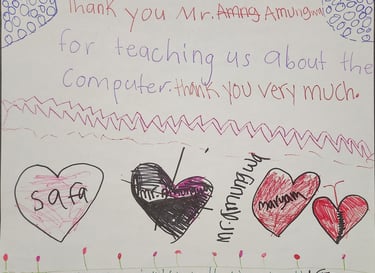 Thank you Mr. Amng Amungwa
for teaching us about the
Computer. thank you very much.
safa
Mr. Amungwa
mr. amungwa
maryam